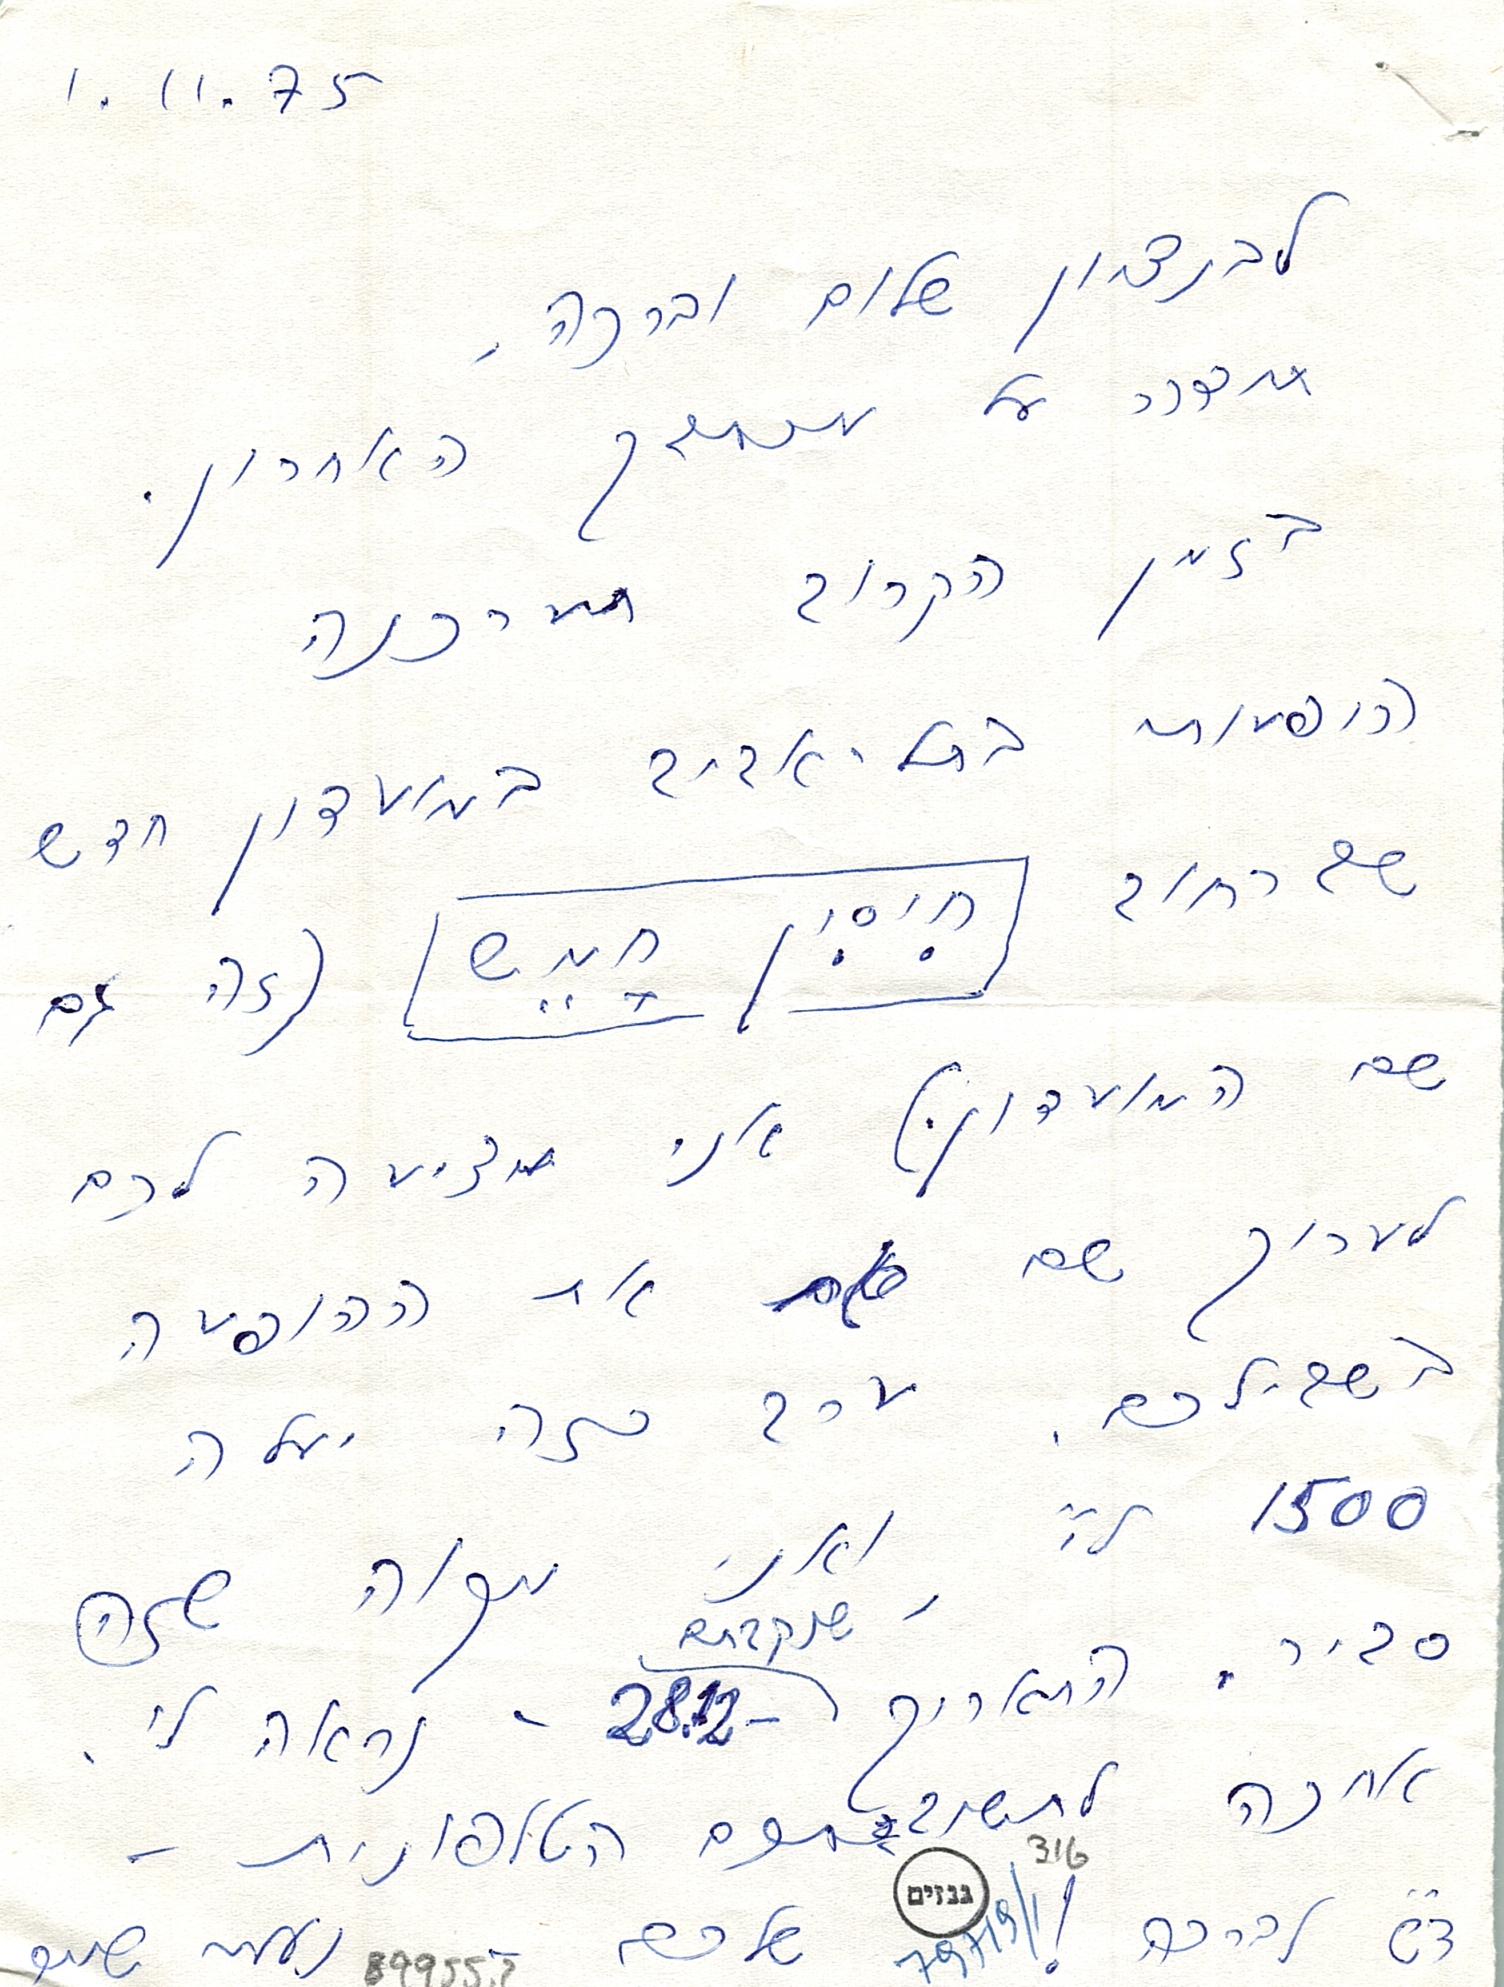 1.11.75
לבנציון שלום וברכה,
תודה על מכתבך האחרון.
בזמן הקרוב תערכנה
הופעות בתל-אביב במועדון חדש
שברחוב חיסין חמש (זה גם
שם המועדון.) אני מציעה לכם
לערוך שם את ההופעה
בשבילכם. ערב כזה יעלה
1500 ל"י, ואני מקוה שזה
סביר. התאריך שנקבתם - 28.12 - נראה לי.
אחכה לתשובתכם הטלפונית -
ד"ש לברכה! שלכם נעמי שמר
גנזים
316
79719/1
89955